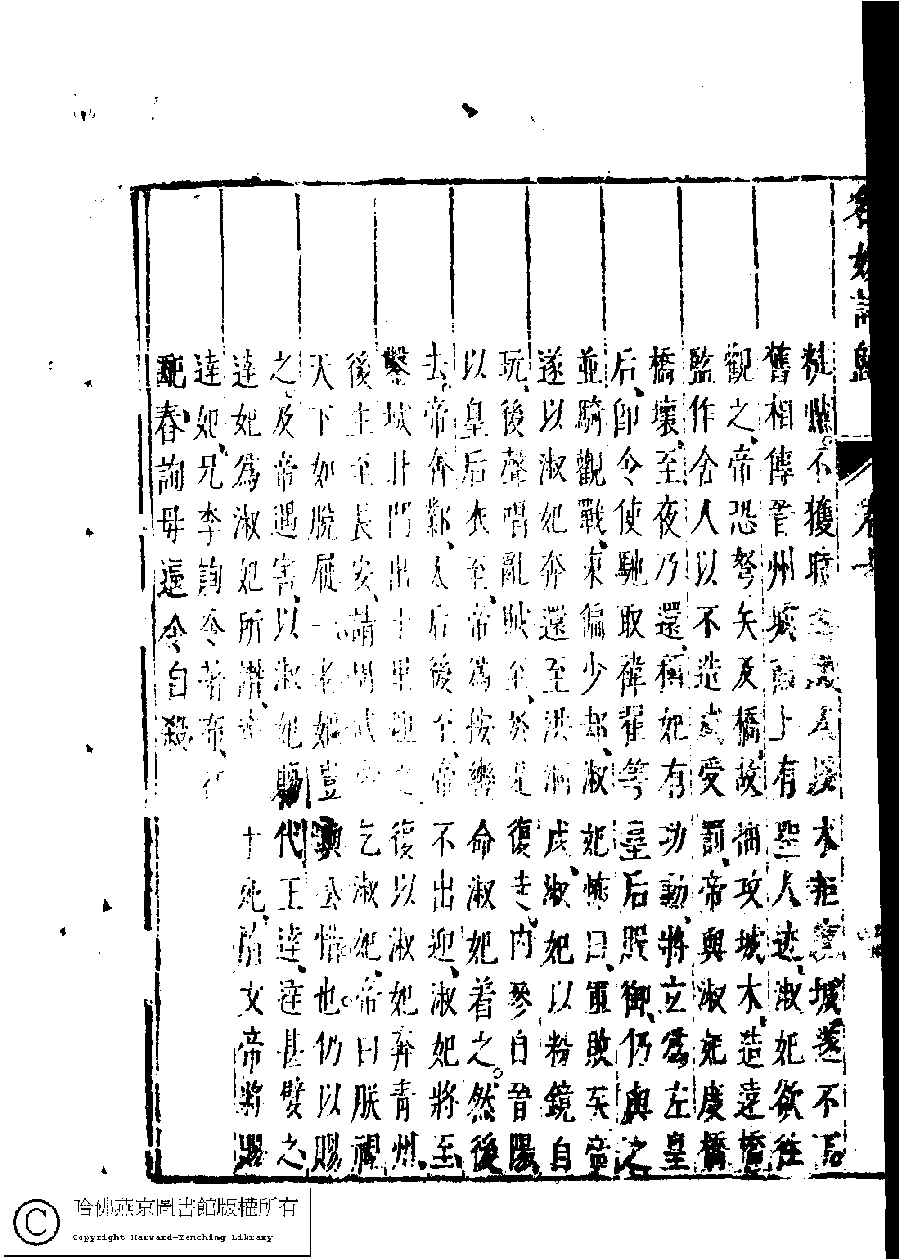 粧點。不獲時至周人以木拒塞城遂不下
舊相傳晉州城西上有聖人迹、淑妃欲往
觀之、帝恐弩矢及橋、故抽攻城木、造遠橋
監作舍人以不造受罰、帝與淑妃度橋
橋壞、至夜乃還、稱妃有功勳、將立爲左皇
后、即令使馳取褘翟等皇后服御、仍與之
並騎觀戰、東偏少却、淑妃怖曰、軍敗矣、帝
遂以淑妃奔還至洪洞戍、淑妃以粉鏡自
玩、後聲唱亂賊至、於是復走、內參自晉陽
以皇后衣至、帝爲按轡命淑妃着之。然後
去、帝奔鄴、太后後至、帝不出迎、淑妃將至、
鑿城北門出十里迎之後以淑妃奔青州、
後主至長安、請周武帝乞淑妃、帝曰朕視
天下如脫屣、一老嫗豈與公惜也。仍以賜
之、及帝遇害、以淑妃賜代王達、達甚嬖之、
達妃爲淑妃所譖、十死、隋文帝將賜
達妃兄李詢令著布
配春、詢母逼令自殺
哈佛燕京圖書館版權所有
Copyright Harvard-Yenching Library